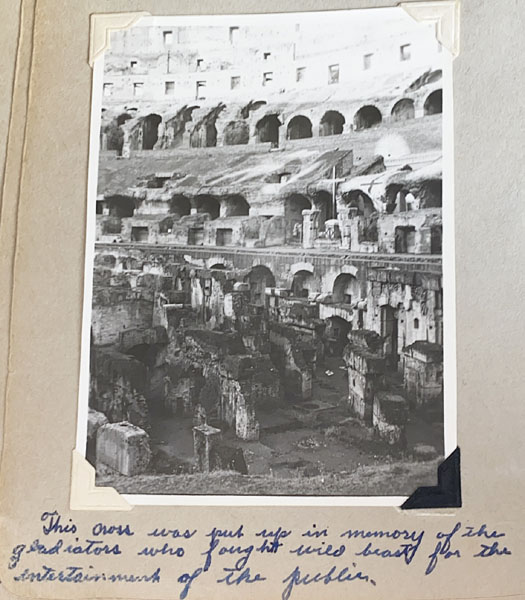 This cross was put up in memory of the
gladiators who fought wild beasts for the
entertainment of the public.